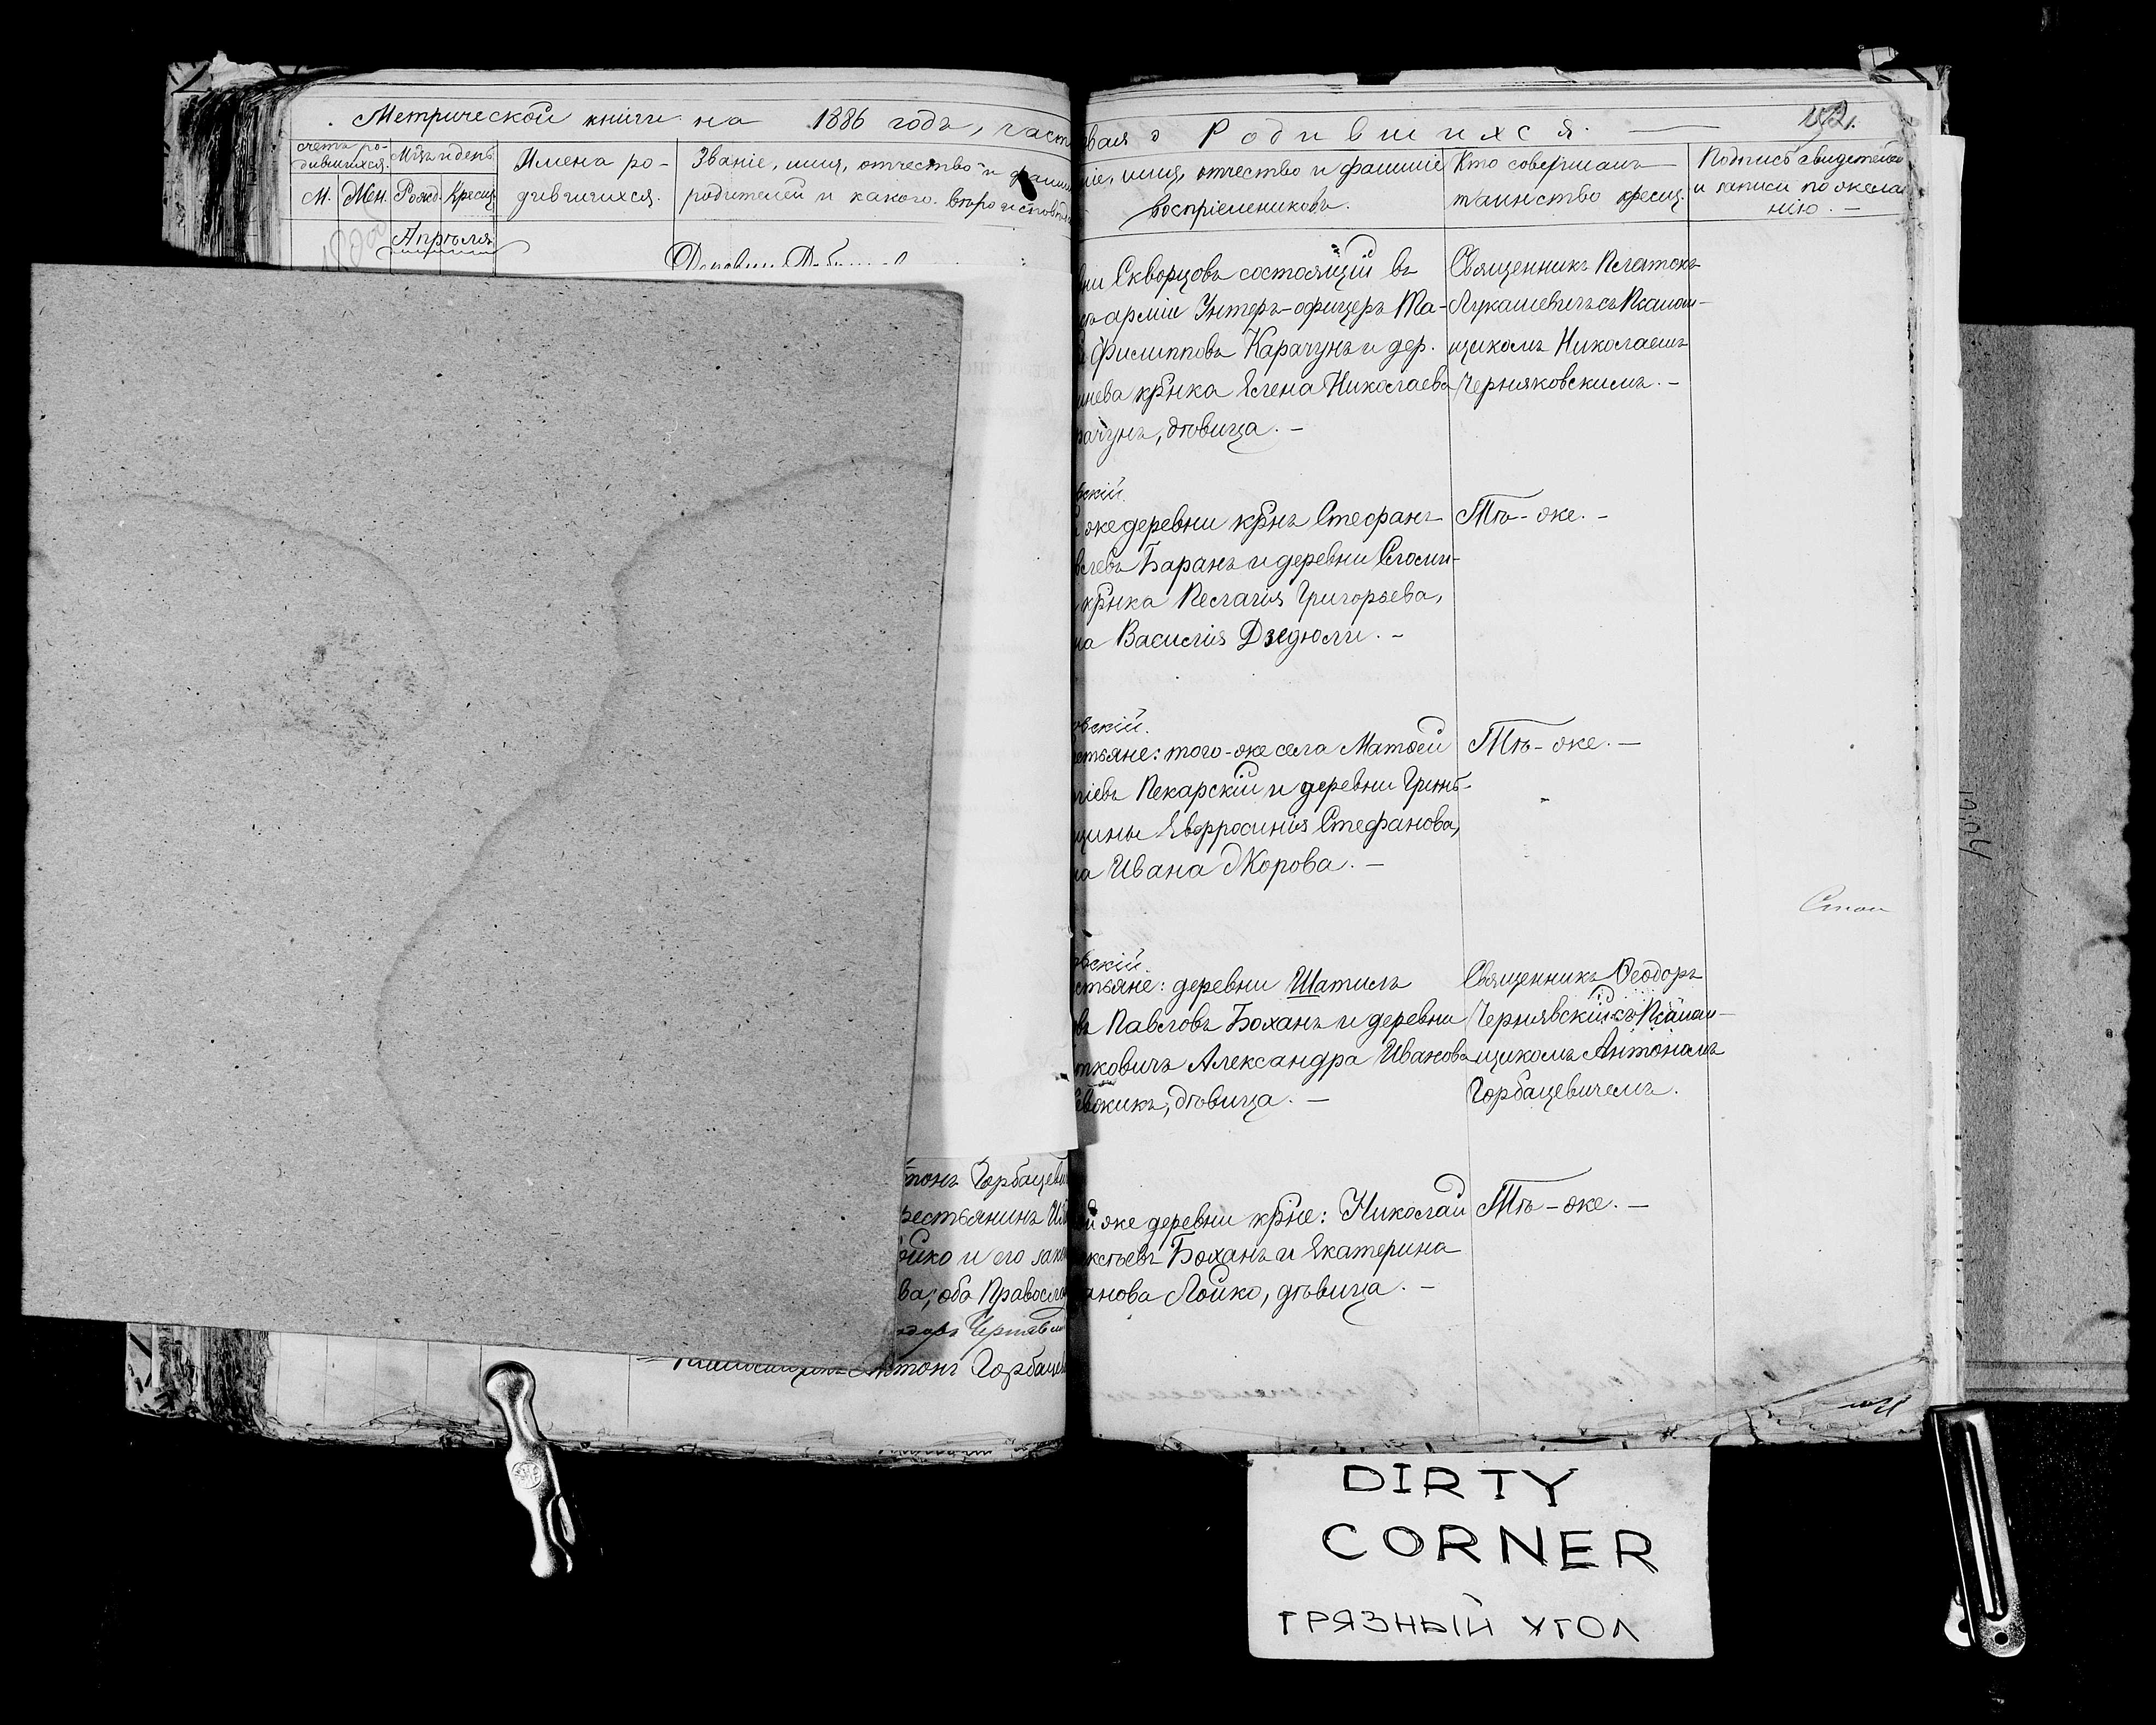 Метрической книги на 1886 годъ, част
вая о Родившихся.
счетъ ро-
дившихся.
М-цъ и день
М.
Жен.
Рожд.
Крещ.
Имена ро-
дившихся.
Званіе, имя, отчество и фамил
родителей и какого
іе, имя, отчество и фамиліе
воспріемниковъ.
Кто совершалъ
таинство крещ.
Подпись свидетелей
и записи по жела
нію. —
Апрѣля
ни Скворцовъ состоящій въ
арміи Унтеръ-офицеръ Ма-
Филипповъ Карачунъ и дер.
нева кр-нка Елена Николаева
рачунъ, дѣвица. —
Священникъ Платонъ
Лукашевичъ съ Псалом-
щикомъ Николаемъ
Черняковскимъ. —
вскій.
же деревни кр-нъ Стефанъ
влевъ Баранъ и деревни
кр-нка Пелагія Григорьева,
на Василія Дзедюли. —
Тѣ-же. —
овскій.
стьяне: того-же села Матѳей
гіевъ Пекарскій и деревни Гринь-
щины Евфросинія Стефанова,
на Ивана Жорова. —
Тѣ-же. —
вскій.
стьяне: деревни Шатилъ
въ Павловъ Боханъ и деревни
тковичъ Александра Иванова
дѣвица. —
Священникъ Ѳеодоръ
Чернявскій съ Псалом-
щикомъ Антономъ
Горбацевичемъ.
тонъ Горбацеви
рестьянинъ
ойко и его закон
ва; оба Православ
Черняв
Антонъ Горбацев
й же деревни кр-не: Николай
ксѣевъ Боханъ и Екатерина
анова Лойко, дѣвица. —
Тѣ-же. —
DIRTY
CORNER
ГРЯЗНЫЙ УГОЛ